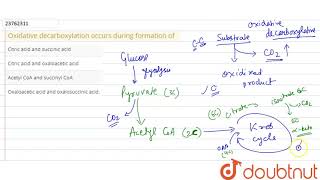 23762311
Oxidative decarboxylation occurs during formation of
Citric acid and succinic acid
Citric acid and oxaloacetic acid
Acetyl CoA and succinyl CoA
Oxaloacetic acid and oxalosuccinic acid.
oxidative
decarboxylative
C-C
Substrate
Glucose
glycolysis
oxidized
product
Pyruvate (3C)
CO2
Acetyl CoA (2C)
(6C) citrate
isocitrate 6C
CO2
(5C)
α-keto
Kreb
cycle
OAA
(4C)
doubtnut